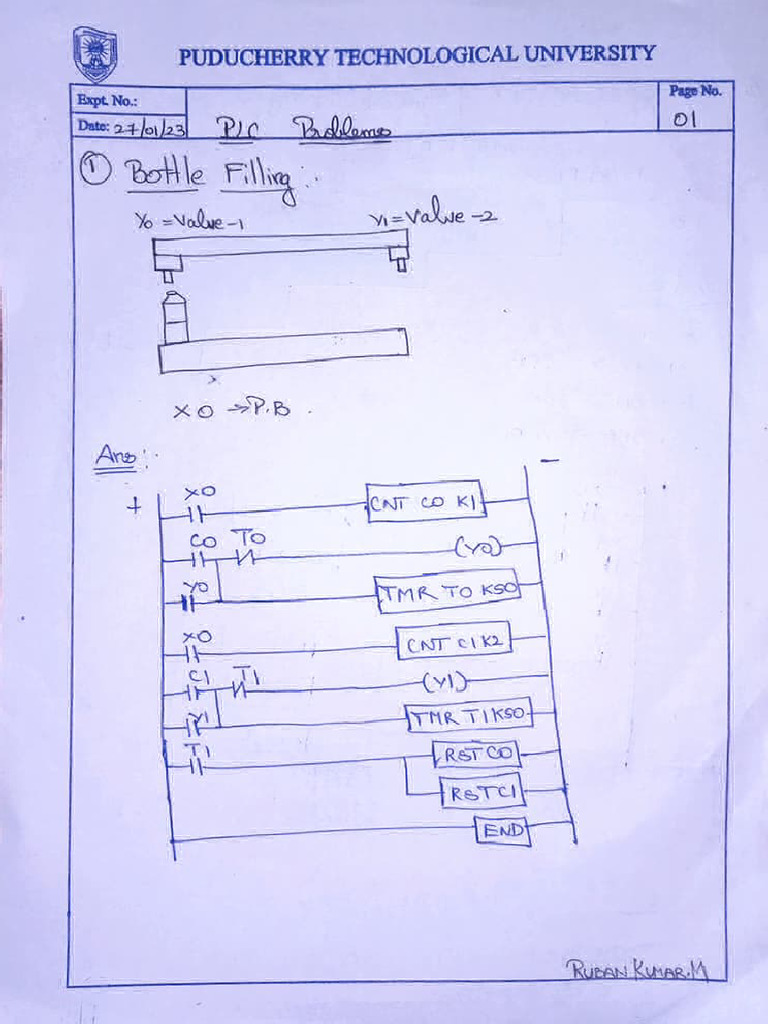 PUDUCHERRY TECHNOLOGICAL UNIVERSITY
Expt. No.:
Page No.
Date: 27/01/23
PLC Problems
01
① Bottle Filling:
Y0 = Valve-1
Y1 = Valve-2
X0 → P.B.
Ans:
+
-
X0
CNT C0 K1
C0 T0
(Y0)
Y0
TMR T0 K50
X0
CNT C1 K2
C1 T1
(Y1)
Y1
TMR T1 K50
T1
RST C0
RST C1
END
RUBAN KUMAR.M